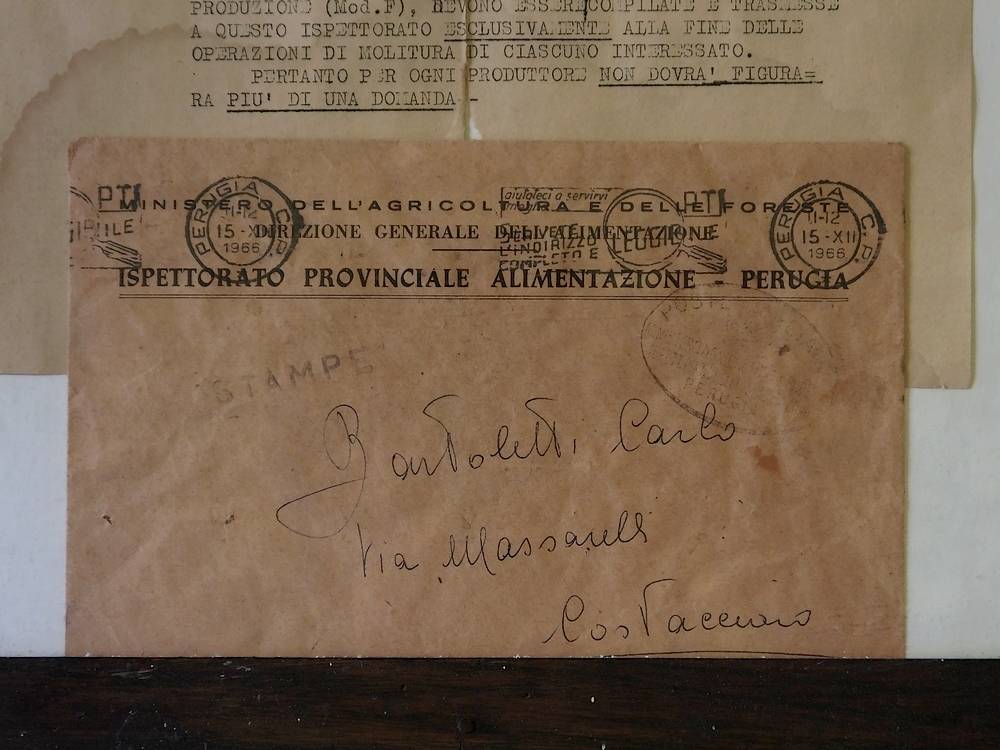 PRODUZIONE (Mod.F), DEVONO ESSERE COMPILATE E TRASMESSE
A QUESTO ISPETTORATO ESCLUSIVAMENTE ALLA FINE DELLE
OPERAZIONI DI MOLITURA DI CIASCUNO INTERESSATO.
PERTANTO PER OGNI PRODUTTORE NON DOVRA' FIGURA=
RA PIU' DI UNA DOMANDA.-
MINISTERO DELL'AGRICOLTURA E DELLE FORESTE
DIREZIONE GENERALE DELL'ALIMENTAZIONE
ISPETTORATO PROVINCIALE ALIMENTAZIONE - PERUGIA
PTI
PERUGIA C.P.
11-12
15-XII
1966
aiutateci a servirvi
meglio
SCRIVETE
L'INDIRIZZO
COMPLETO E
LEGGIBILE
PTI
PERUGIA C.P.
11-12
15-XII
1966
POSTE
PERUGIA
STAMPE
Bartoletti Carlo
Via Massarelli
Costacciaro